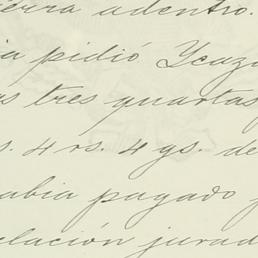 ierra adentro.
ia pidió Ycaz
as tres quartas
s. 4 rs. 4 gs. de
abia pagado
elación jurad